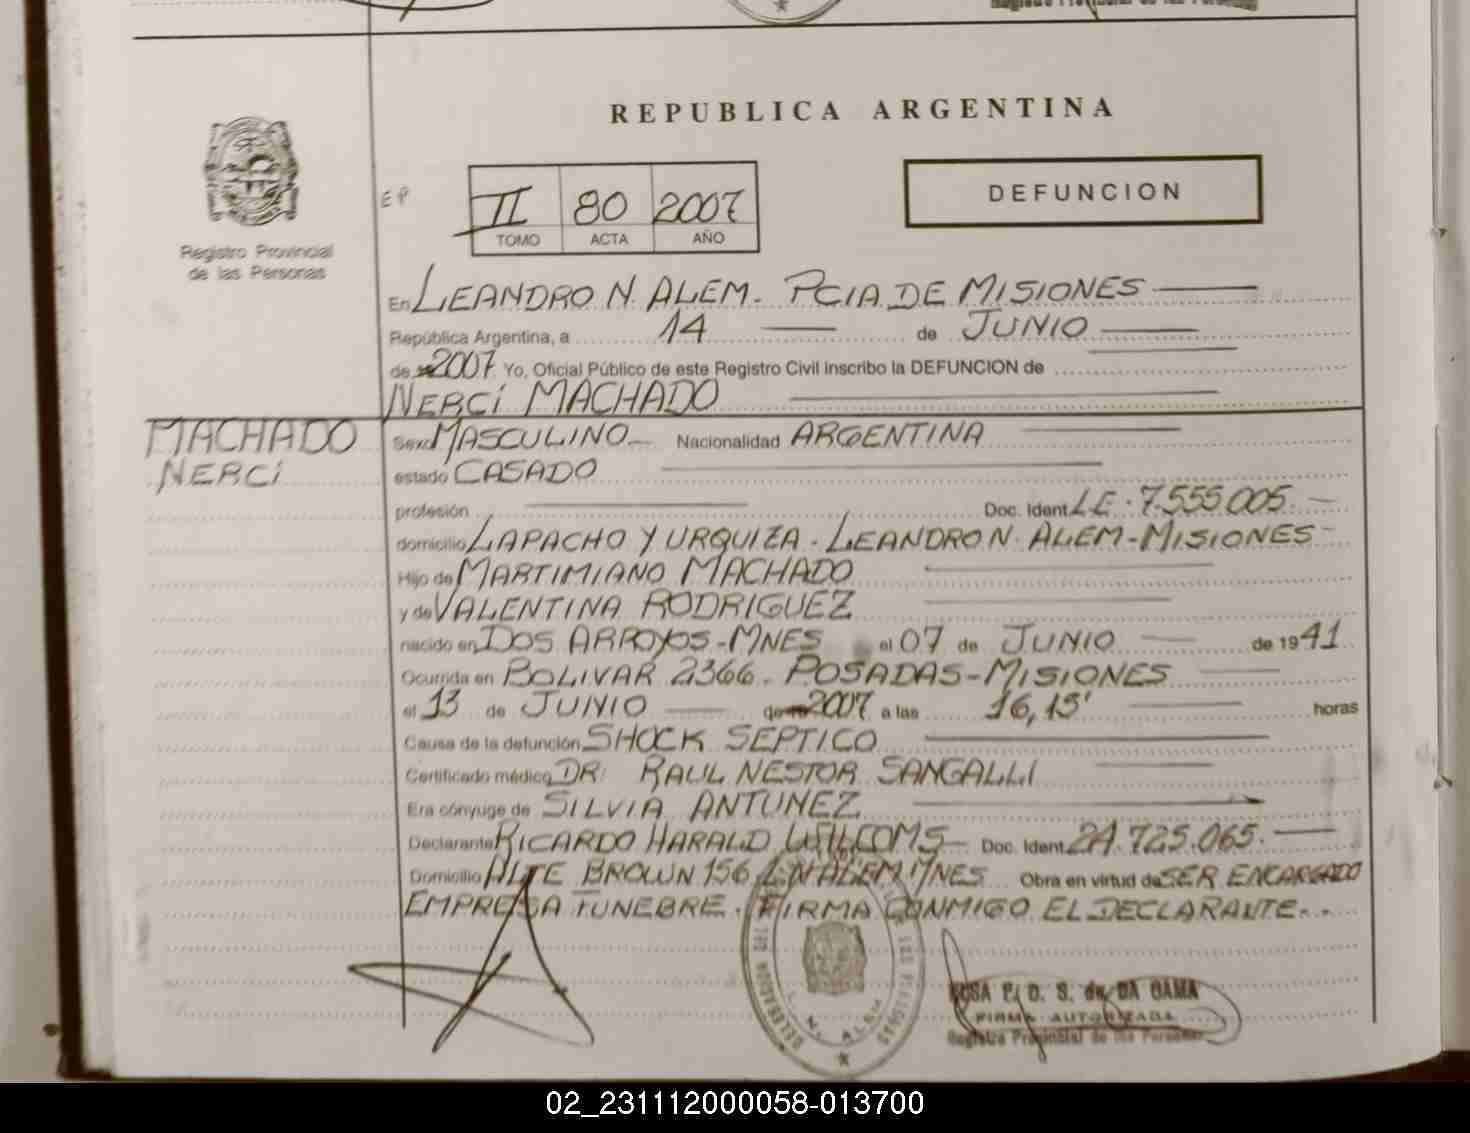 REPUBLICA ARGENTINA
Registro Provincial
de las Personas
EP
II 80 2007
TOMO ACTA AÑO
DEFUNCION
En LEANDRO N. ALEM. PCIA DE MISIONES
República Argentina, a 14 de JUNIO
de 2007 Yo, Oficial Público de este Registro Civil inscribo la DEFUNCION de
NERCí MACHADO
MACHADO
NERCí
Sexo MASCULINO Nacionalidad ARGENTINA
estado CASADO
profesión Doc. Ident LE. 7.555.005.
domicilio LAPACHO Y URQUIZA. LEANDRO N. ALEM-MISIONES
Hijo de MARTIMIANO MACHADO
y de VALENTINA RODRIGUEZ
nacido en DOS ARROYOS-MNES el 07 de JUNIO de 1941
Ocurrida en BOLIVAR 2366. POSADAS-MISIONES
el 13 de JUNIO de 2007 a las 16,15' horas
Causa de la defunción SHOCK SEPTICO
Certificado médico DR. RAUL NESTOR SANGALLI
Era cónyuge de SILVIA ANTUNEZ
Declarante RICARDO HARALD Doc. Ident 24.725.065.
Domicilio ALTE BROWN 156 L.N.ALEM MNES Obra en virtud de SER ENCARGADO
EMPRESA FUNEBRE. FIRMA CONMIGO EL DECLARANTE..
DELEGACION L. N. ALEM
DA GAMA
FIRMA AUTORIZADA
Registro Provincial de las Personas
02_231112000058-013700